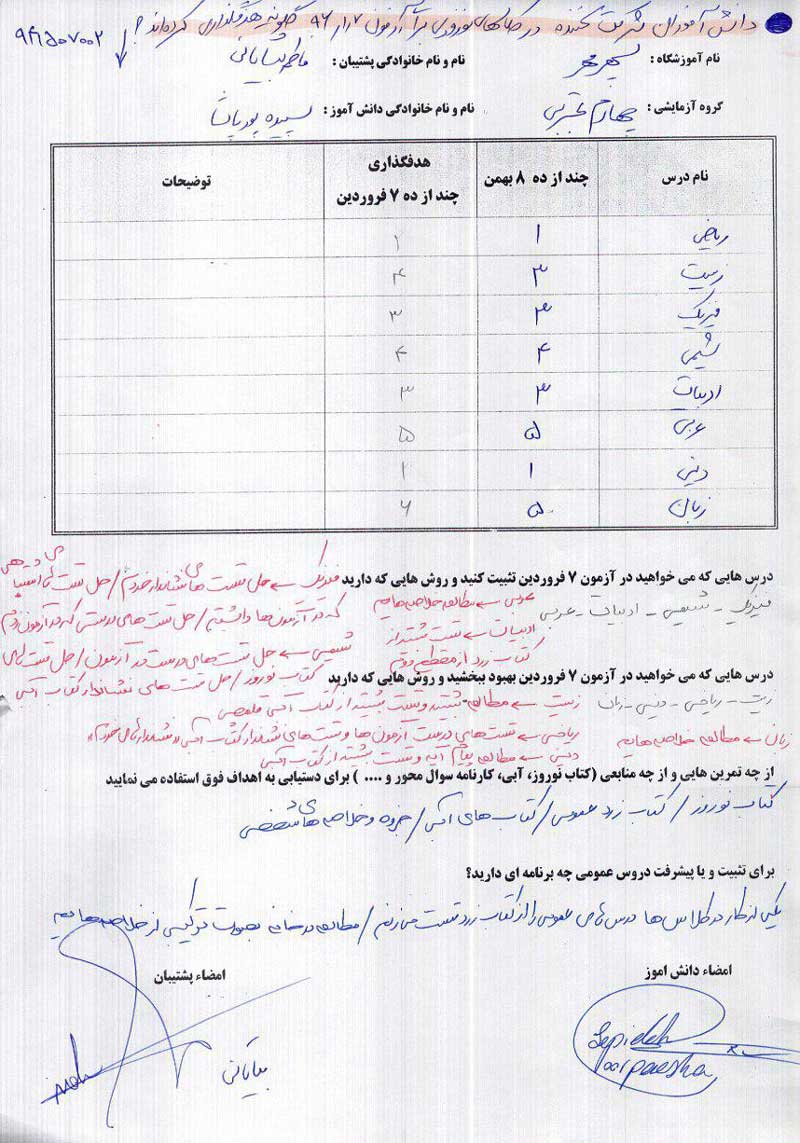 دانش آموزان شرکت کننده در سالنهای نوروزی برای آزمون ۷ / ۱ / ۹۶ چگونه هدفگذاری کرده اند؟
۹۴۱۵۰۷۰۰۲
نام آموزشگاه : سپهر مهر نام و نام خانوادگی پشتیبان : فاطمه بیابانی
گروه آزمایشی : چهارم تجربی نام و نام خانوادگی دانش آموز : سپیده پورپاشا
نام درس چند از ده ۸ بهمن هدفگذاری چند از ده ۷ فروردین توضیحات
ریاضی ۱ ۱
زیست ۳ ۴
فیزیک ۳ ۳
شیمی ۴ ۴
ادبیات ۳ ۳
عربی ۵ ۵
دینی ۱ ۱
زبان ۵ ۶
درس هایی که می خواهید در آزمون ۷ فروردین تثبیت کنید و روش هایی که دارید
فیزیک ← حل تست های نشاندار خودم / حل تست های
که در آزمون ها داشتم / حل تست های درستی که در آزمون زدم
فیزیک - شیمی - ادبیات - عربی
عربی ← مطالعه خلاصه هایم
ادبیات ← تست بیشتر از کتاب زرد
شیمی ← حل تست های درست در آزمون / حل تست های کتاب نوروز / حل تست های نشاندار کتاب آبی
درس هایی که می خواهید در آزمون ۷ فروردین بهبود ببخشید و روش هایی که دارید
زیست - ریاضی - دینی - زبان
زیست ← مطالعه بیشتر و تست بیشتر از کتاب آبی
ریاضی ← تست های درست آزمون ها و تست های نشاندار کتاب آبی
زبان ← مطالعه خلاصه هایم
دینی ← مطالعه پیام آیه و تست بیشتر از کتاب آبی
از چه تمرین هایی و از چه منابعی (کتاب نوروز، آبی، کارنامه سوال محور و .... ) برای دستیابی به اهداف فوق استفاده می نمایید
کتاب نوروز / کتاب زرد عمومی / کتاب های آبی / جزوه و خلاصه های شخصی
برای تثبیت و یا پیشرفت دروس عمومی چه برنامه ای دارید؟
یکی از کار در کلاس ها درس های عمومی را از کتاب زرد تست می زنم / مطالعه در خانه بصورت ترکیبی از خلاصه هایم
امضاء دانش اموز امضاء پشتیبان
Sepideh
Poorpaesha
بیابانی